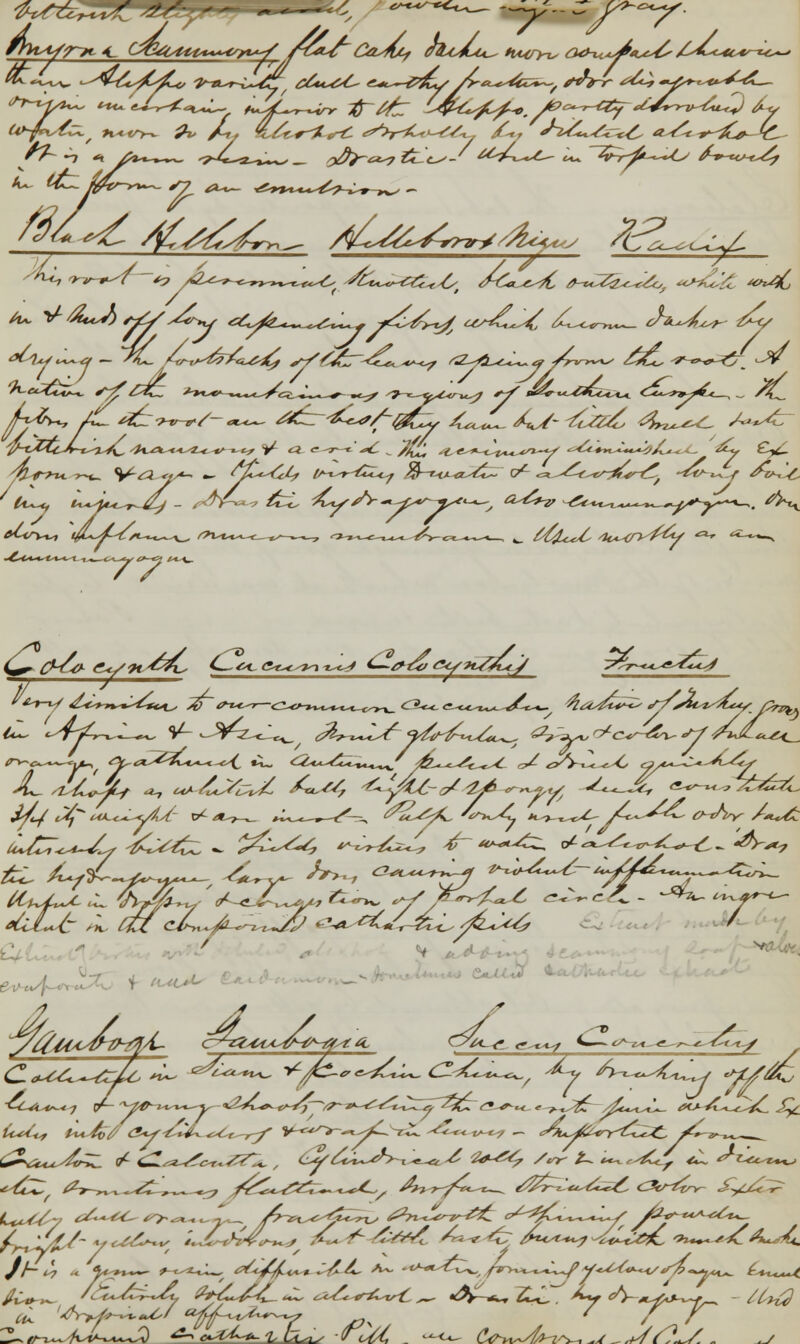 bitterish slightly acrid, powder gray.
Smyrna Scammony, flat cakes darker more compact & heavier
than Aleppo variety, dull earthy fracture, odor disagreeable
origin uncertain, inferior to the Aleppo. partly dissolved by
water, more so by alcohol & wholly by diluted alcohol
It is a gum resin - Drastic - Used in torpid bowels
in the form of an emulsion -
Black Hellebore Helleboros Niger Radix
This root is perennial, Knotted, black outside, white with
in & sends off long depending fibres, which become darker by
drying - The footstalks of the leaves spring from the root. A
native of the mountainous regions of Southern Europe. The
fibres fm the root are the best, they have but little smell, taste
bitterish nauseous & acrid. This acrimony diminished by Ex
posure & age - Yields virtues to water & alcohol, long boil
ing injures - Drastic hydragogue, also emmenagogue. Over
doses inflame mucous membrane. Used mostly as an
emmenagogue
Colocynth Cucumis Colocynthis Fructus
Very similar to our common cucumber, native of Turkey. grows
in Africa & Asia, Fruit globular, size & color of small
orange, gathered in Autumn, peeled & dried quickly
In shops as whitish balls light & spongy, seeds constitute
3/4 its weight & are inert. Pulp only used, feeble odor, taste
intensely bitter - Yields virtues to water & alcohol - Dras
tic hydragogue, large doses causing violent inflammation
Useful in dropsy & congestion of portal circle - An ingre
dient in the compound cathartic pills Extract made by
with diluted alcohol & adding scammony soap & aloes
evaporate & add cardamom - sometimes called Cathartic Extract
Gamboge Gambogia Succus Concretus
Collected in Siam & Cochin China, by breaking off the
leaves & young shoots, rolling the concrete juice which Ex
udes into cylinders & wrap in leaves - Imported from
Canton & Calcutta, Cylindrical rolls 1 or 2 inches in diam
eter, sometimes flattened, surface striated color Exter
nally dull orange, fracture smooth & shining, powder
bright yellow, inodorous, but little taste, burns with much smoke
It is a gum resin, diffusible in water, forming yellow opaque Emul
sion, Entirely soluble in alcohol - Drastic hydragog - Used
in Dropsical affections
Compound Cathartic Pills are composed of